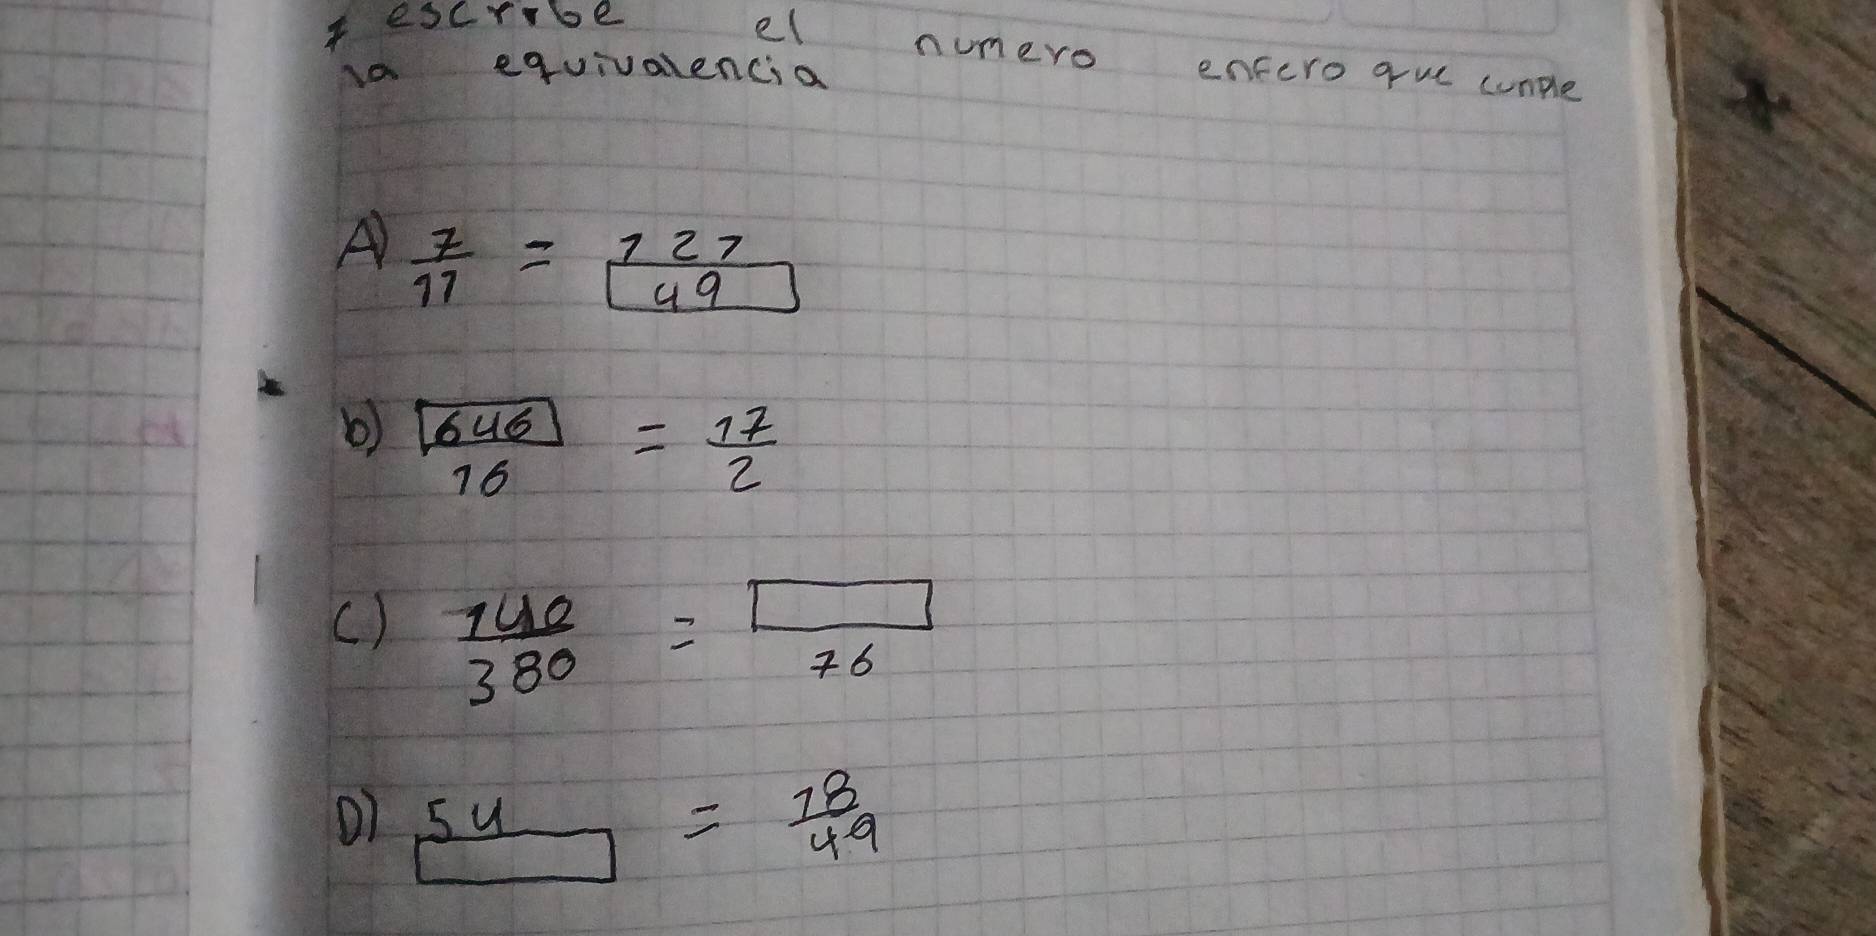 escribe el numero entero que cunple
la equivalencia
A) 7/11 = 121/49
b) 646/16 = 17/2
C) 140/380 = /76
D) 54/ = 18/49